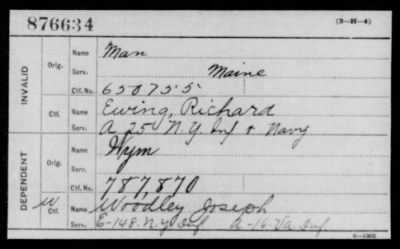 876634 (3—21—4)
INVALID
Orig.
Name Man
Serv. Maine
Ctf. No. 650755
Ctf.
Name Ewing, Richard
Serv. A 25 N.Y. Inf & Navy
DEPENDENT
Orig.
Name Wym
Serv.
Ctf. No. 787,870
W Ctf.
Name Woodley Joseph
Serv. E-148-N.Y. Inf A-16-Va. Inf.
6—1303